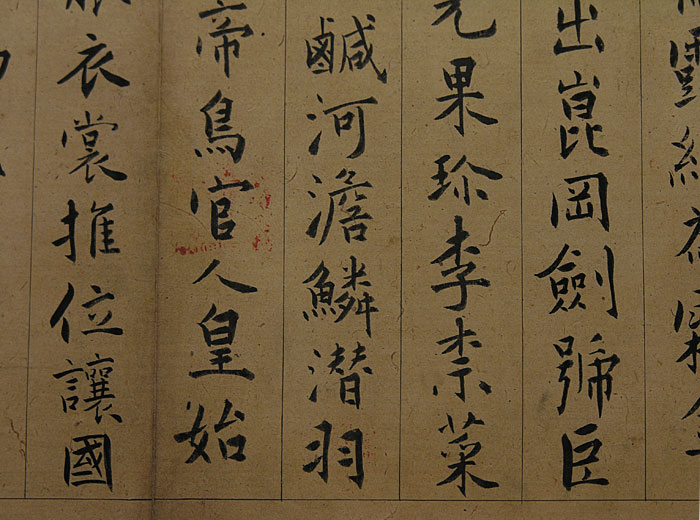 露結為霜金
出崑岡劍號巨
光果珍李柰菜
鹹河澹鱗潛羽
帝鳥官人皇始
服衣裳推位讓國